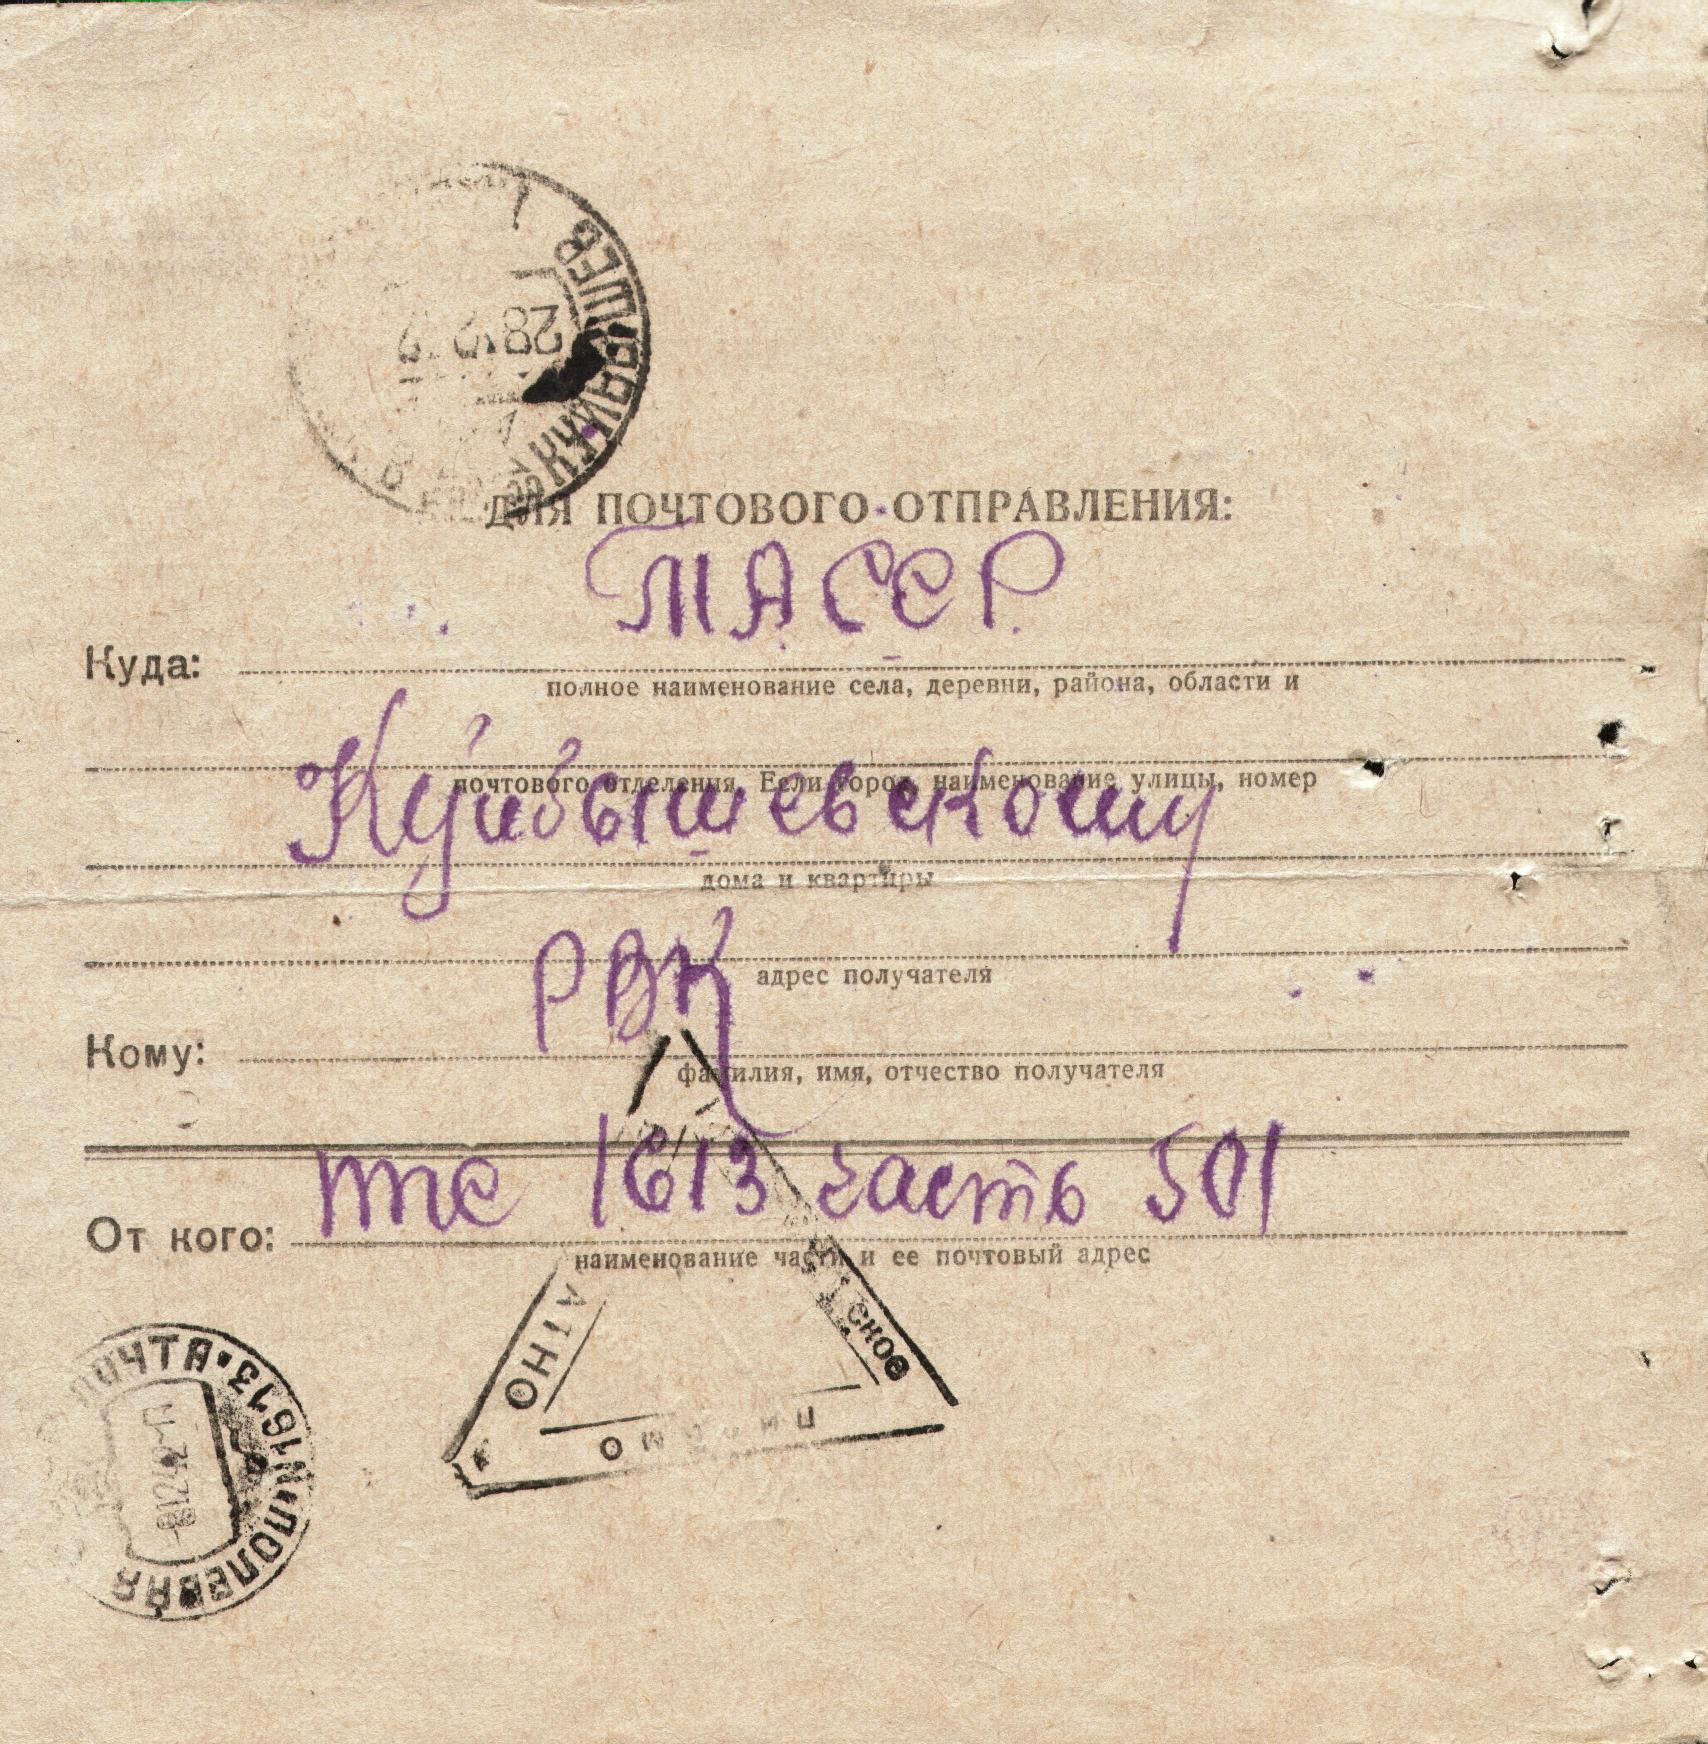 КУЙБЫШЕВ
28
ДЛЯ ПОЧТОВОГО ОТПРАВЛЕНИЯ:
ТАССР
Куда:
полное наименование села, деревни, района, области и
почтового отделения. Если город, наименование улицы, номер
Куйбышевскому
дома и квартиры
РВК
адрес получателя
Кому:
фамилия, имя, отчество получателя
ппс 1613 часть 501
От кого:
наименование части и ее почтовый адрес
ское
ПОЧТА • N1613 • ПОЛЕВАЯ